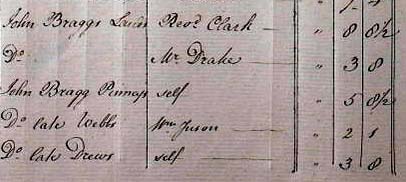 John Braggs Revd. Clark — " 8 8½
Do. Mr. Drake — " 3 8
John Bragg self " 5 8½
Do late Webbs Wm. Juson — " 2 1
Do late Drews self — " 3 8